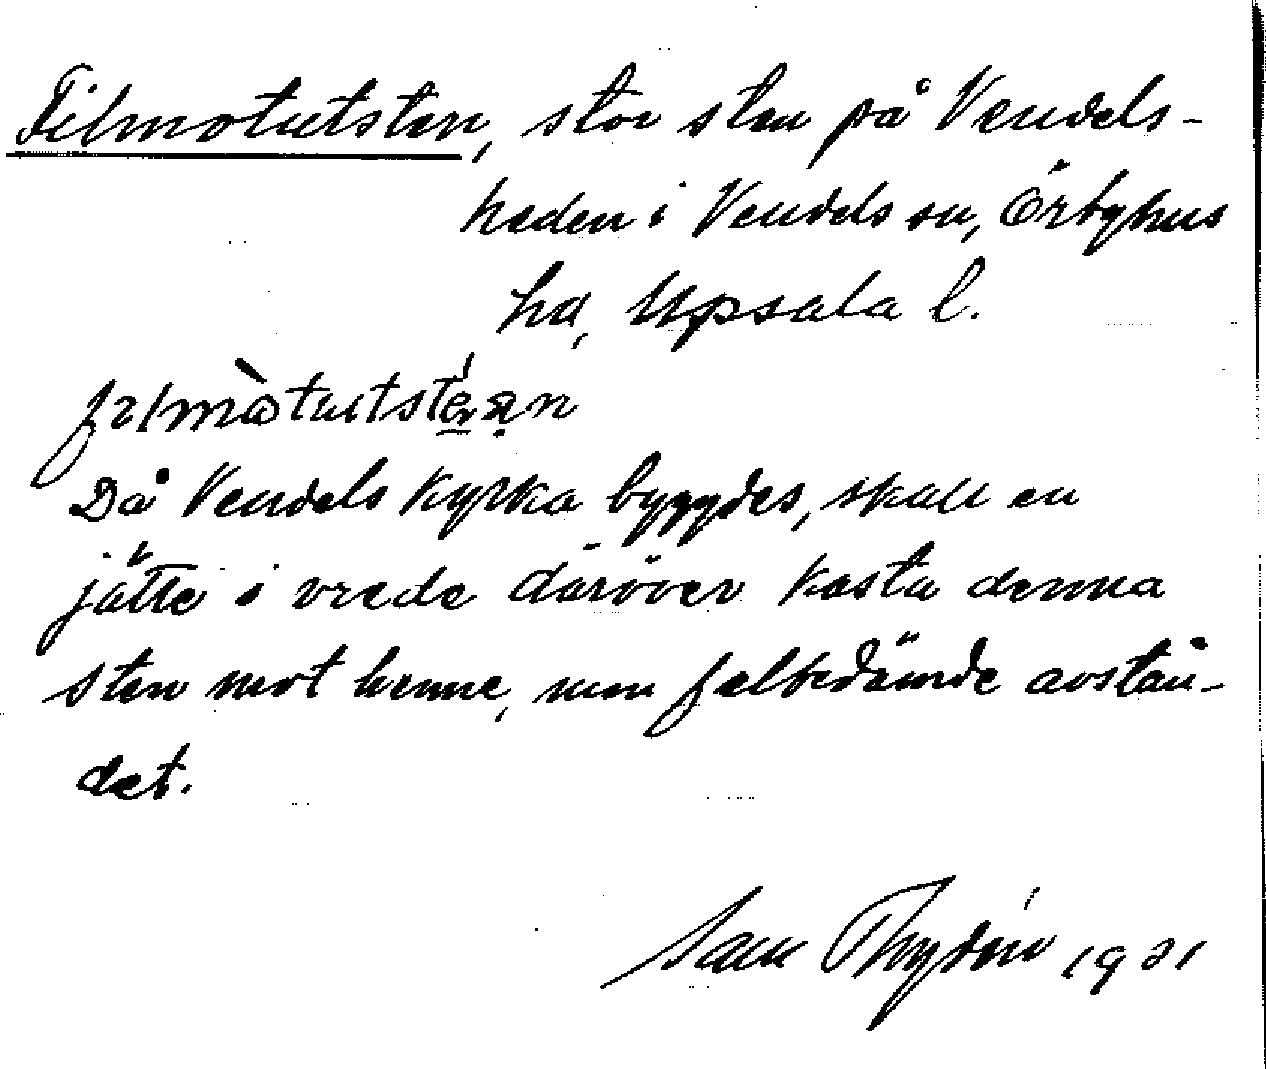 Filmotutsten, stor sten på Vendels-
heden i Vendels sn, Örbyhus
hd, Upsala l.
Då Vendels kyrka byggdes, skall en
jätte i vrede däröver kasta denna
sten mot henne, men felbedömde avstån-
det.
Sam Thydén 1931